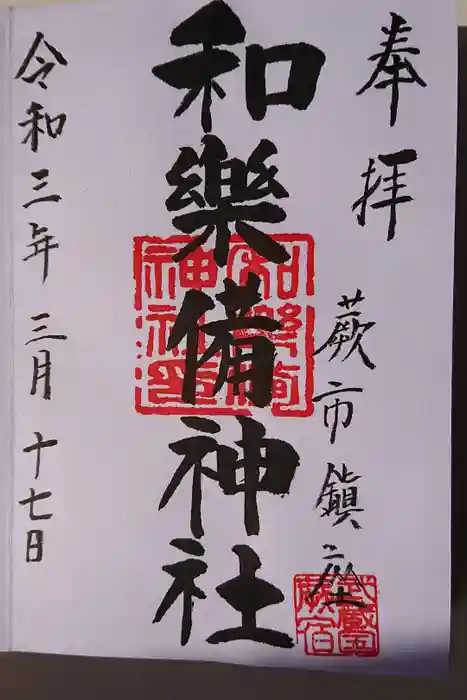 奉拝
蕨市鎮座
和樂備神社
令和三年三月十七日
和樂備神社印
武蔵国蕨宿